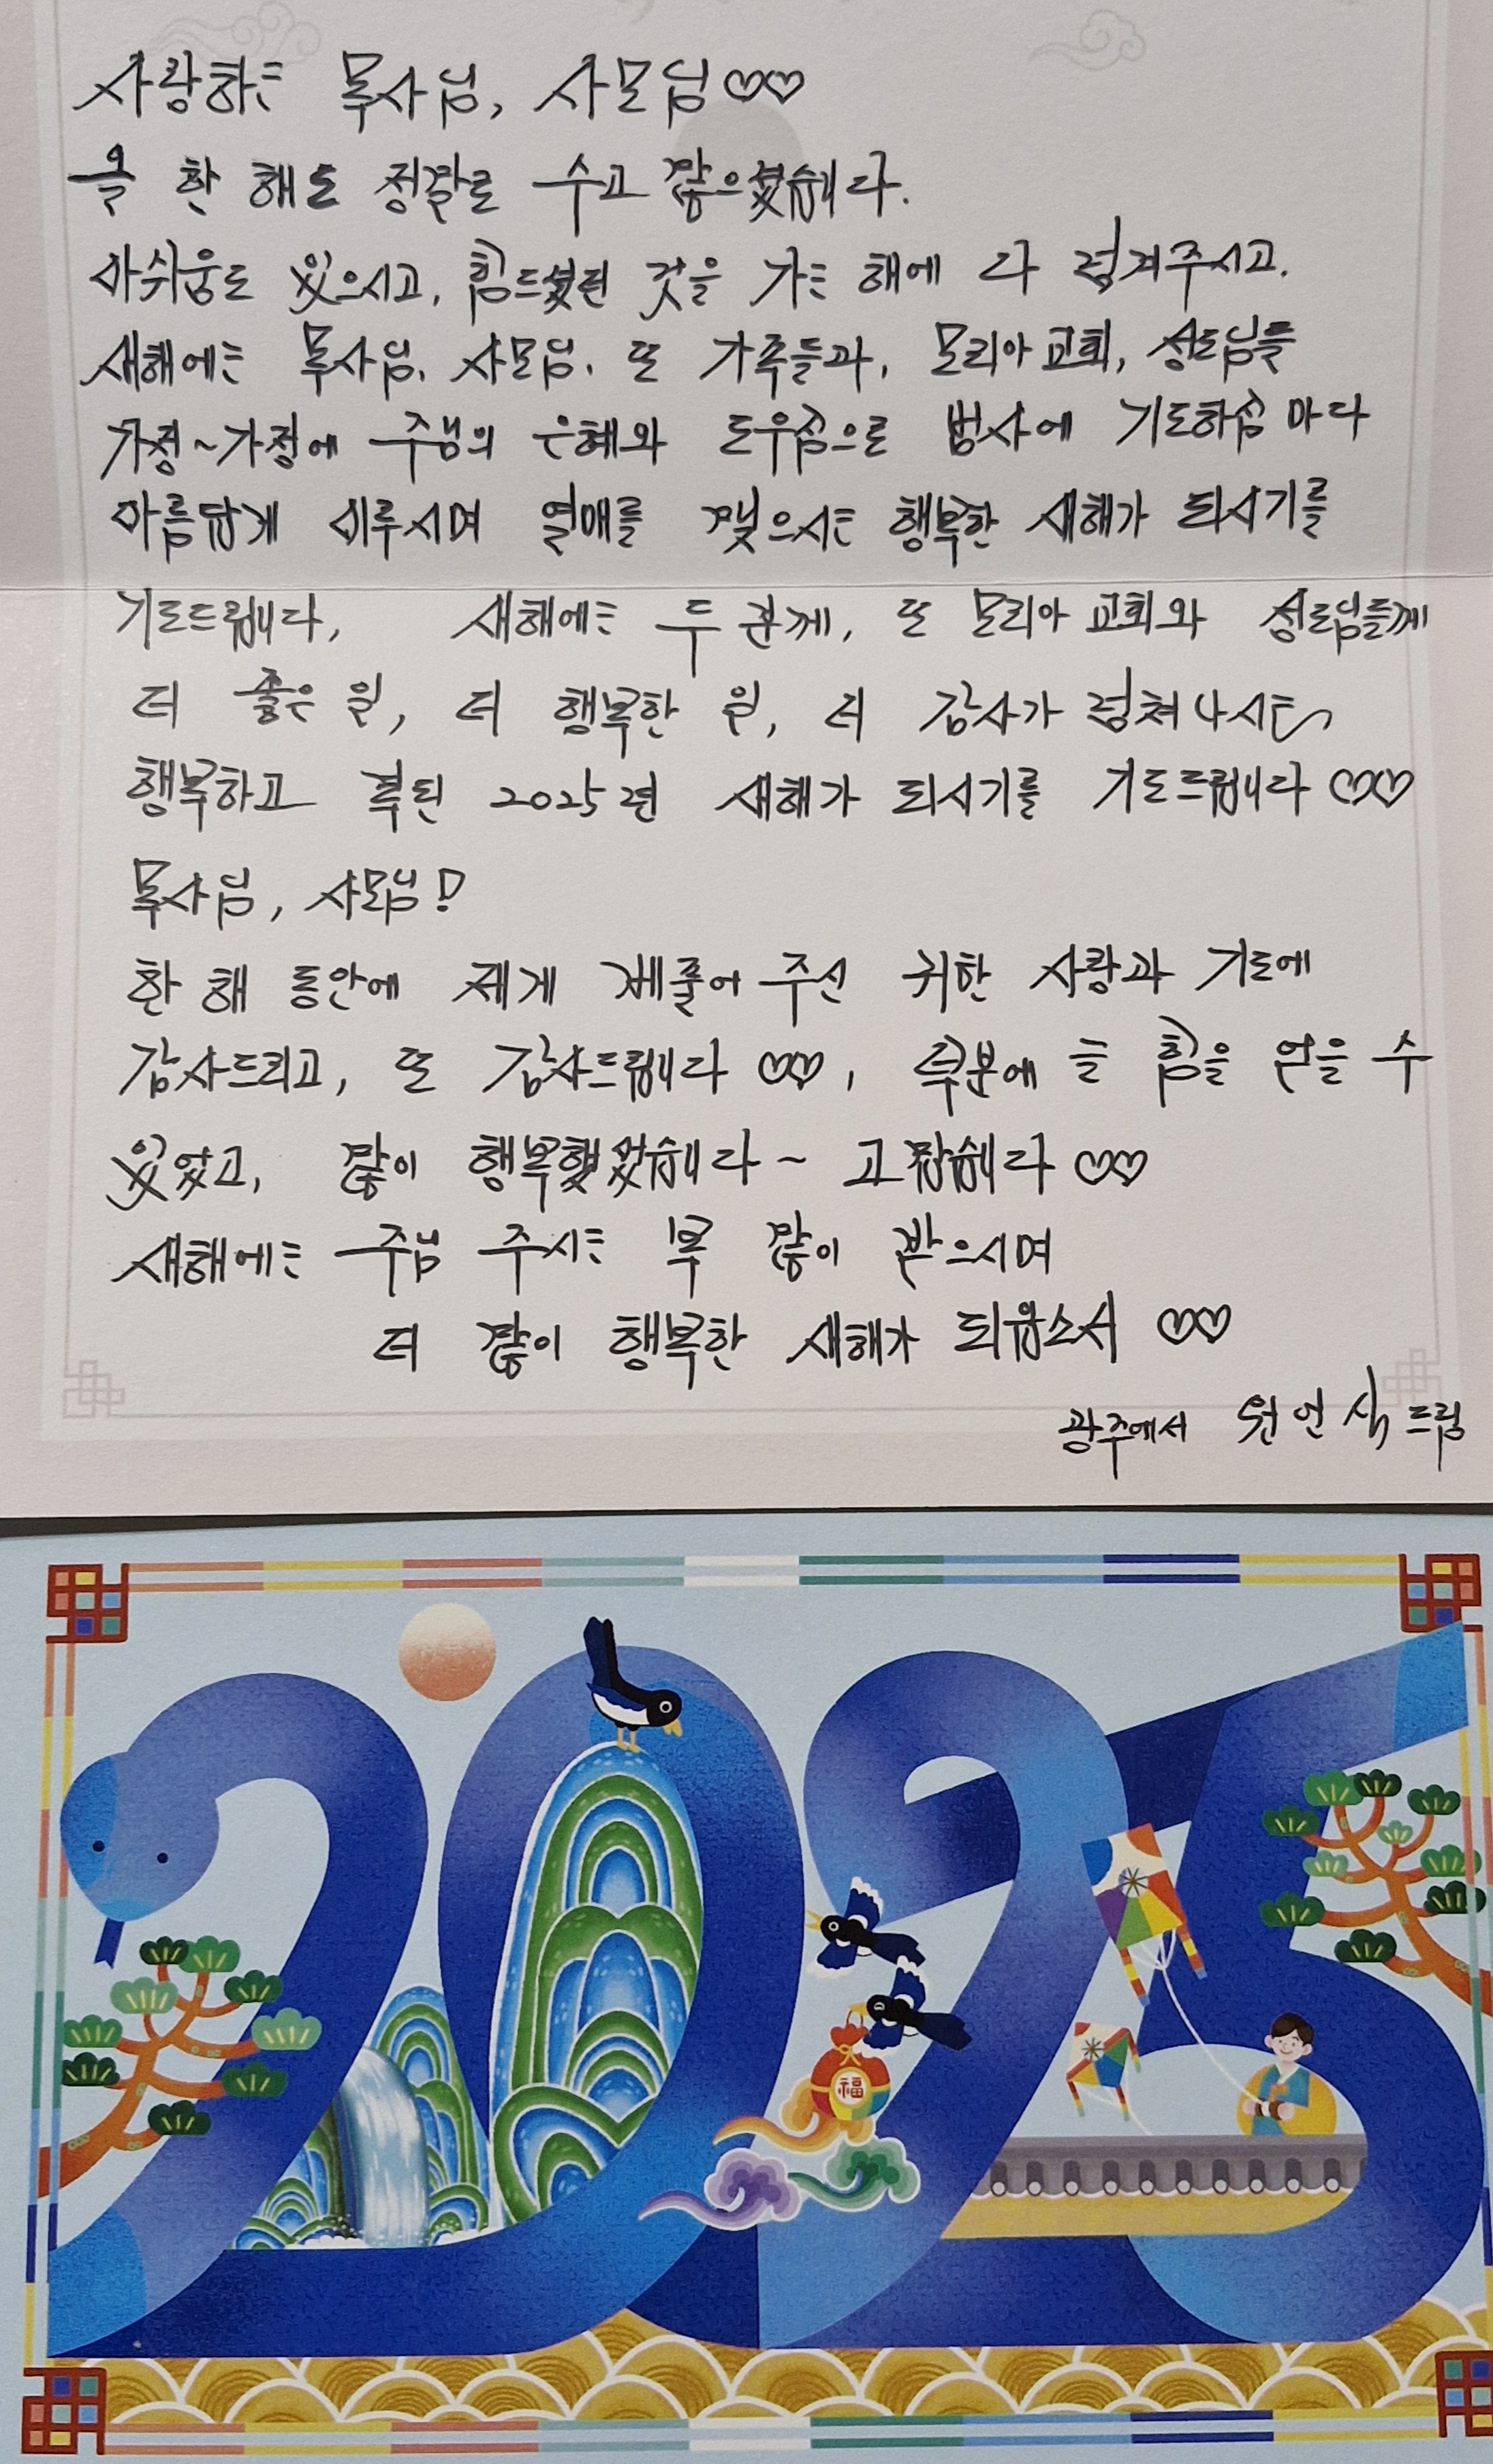 사랑하는 목사님, 사모님♡♡
올 한 해도 정말로 수고 많으셨습니다.
아쉬움도 있으시고, 힘드셨던 것을 가는 해에 다 넘겨주시고,
새해에는 목사님, 사모님, 또 가족들과, 모리아 교회, 성도님들
가정~가정에 주님의 은혜와 도우심으로 범사에 기도하심 마다
아름답게 이루시며 열매를 맺으시는 행복한 새해가 되시기를
기도드립니다, 새해에는 두 분께, 또 모리아 교회와 성도님들께
더 좋은 일, 더 행복한 일, 더 감사가 넘쳐나시는
행복하고 복된 2025년 새해가 되시기를 기도드립니다 ♡♡
목사님, 사모님!
한 해 동안에 제게 베풀어 주신 귀한 사랑과 기도에
감사드리고, 또 감사드립니다 ♡♡, 덕분에 늘 힘을 얻을 수
있었고, 많이 행복했었습니다~ 고맙습니다 ♡♡
새해에는 주님 주시는 복 많이 받으시며
더 많이 행복한 새해가 되옵소서 ♡♡
광주에서 원언식 드림
2025
福